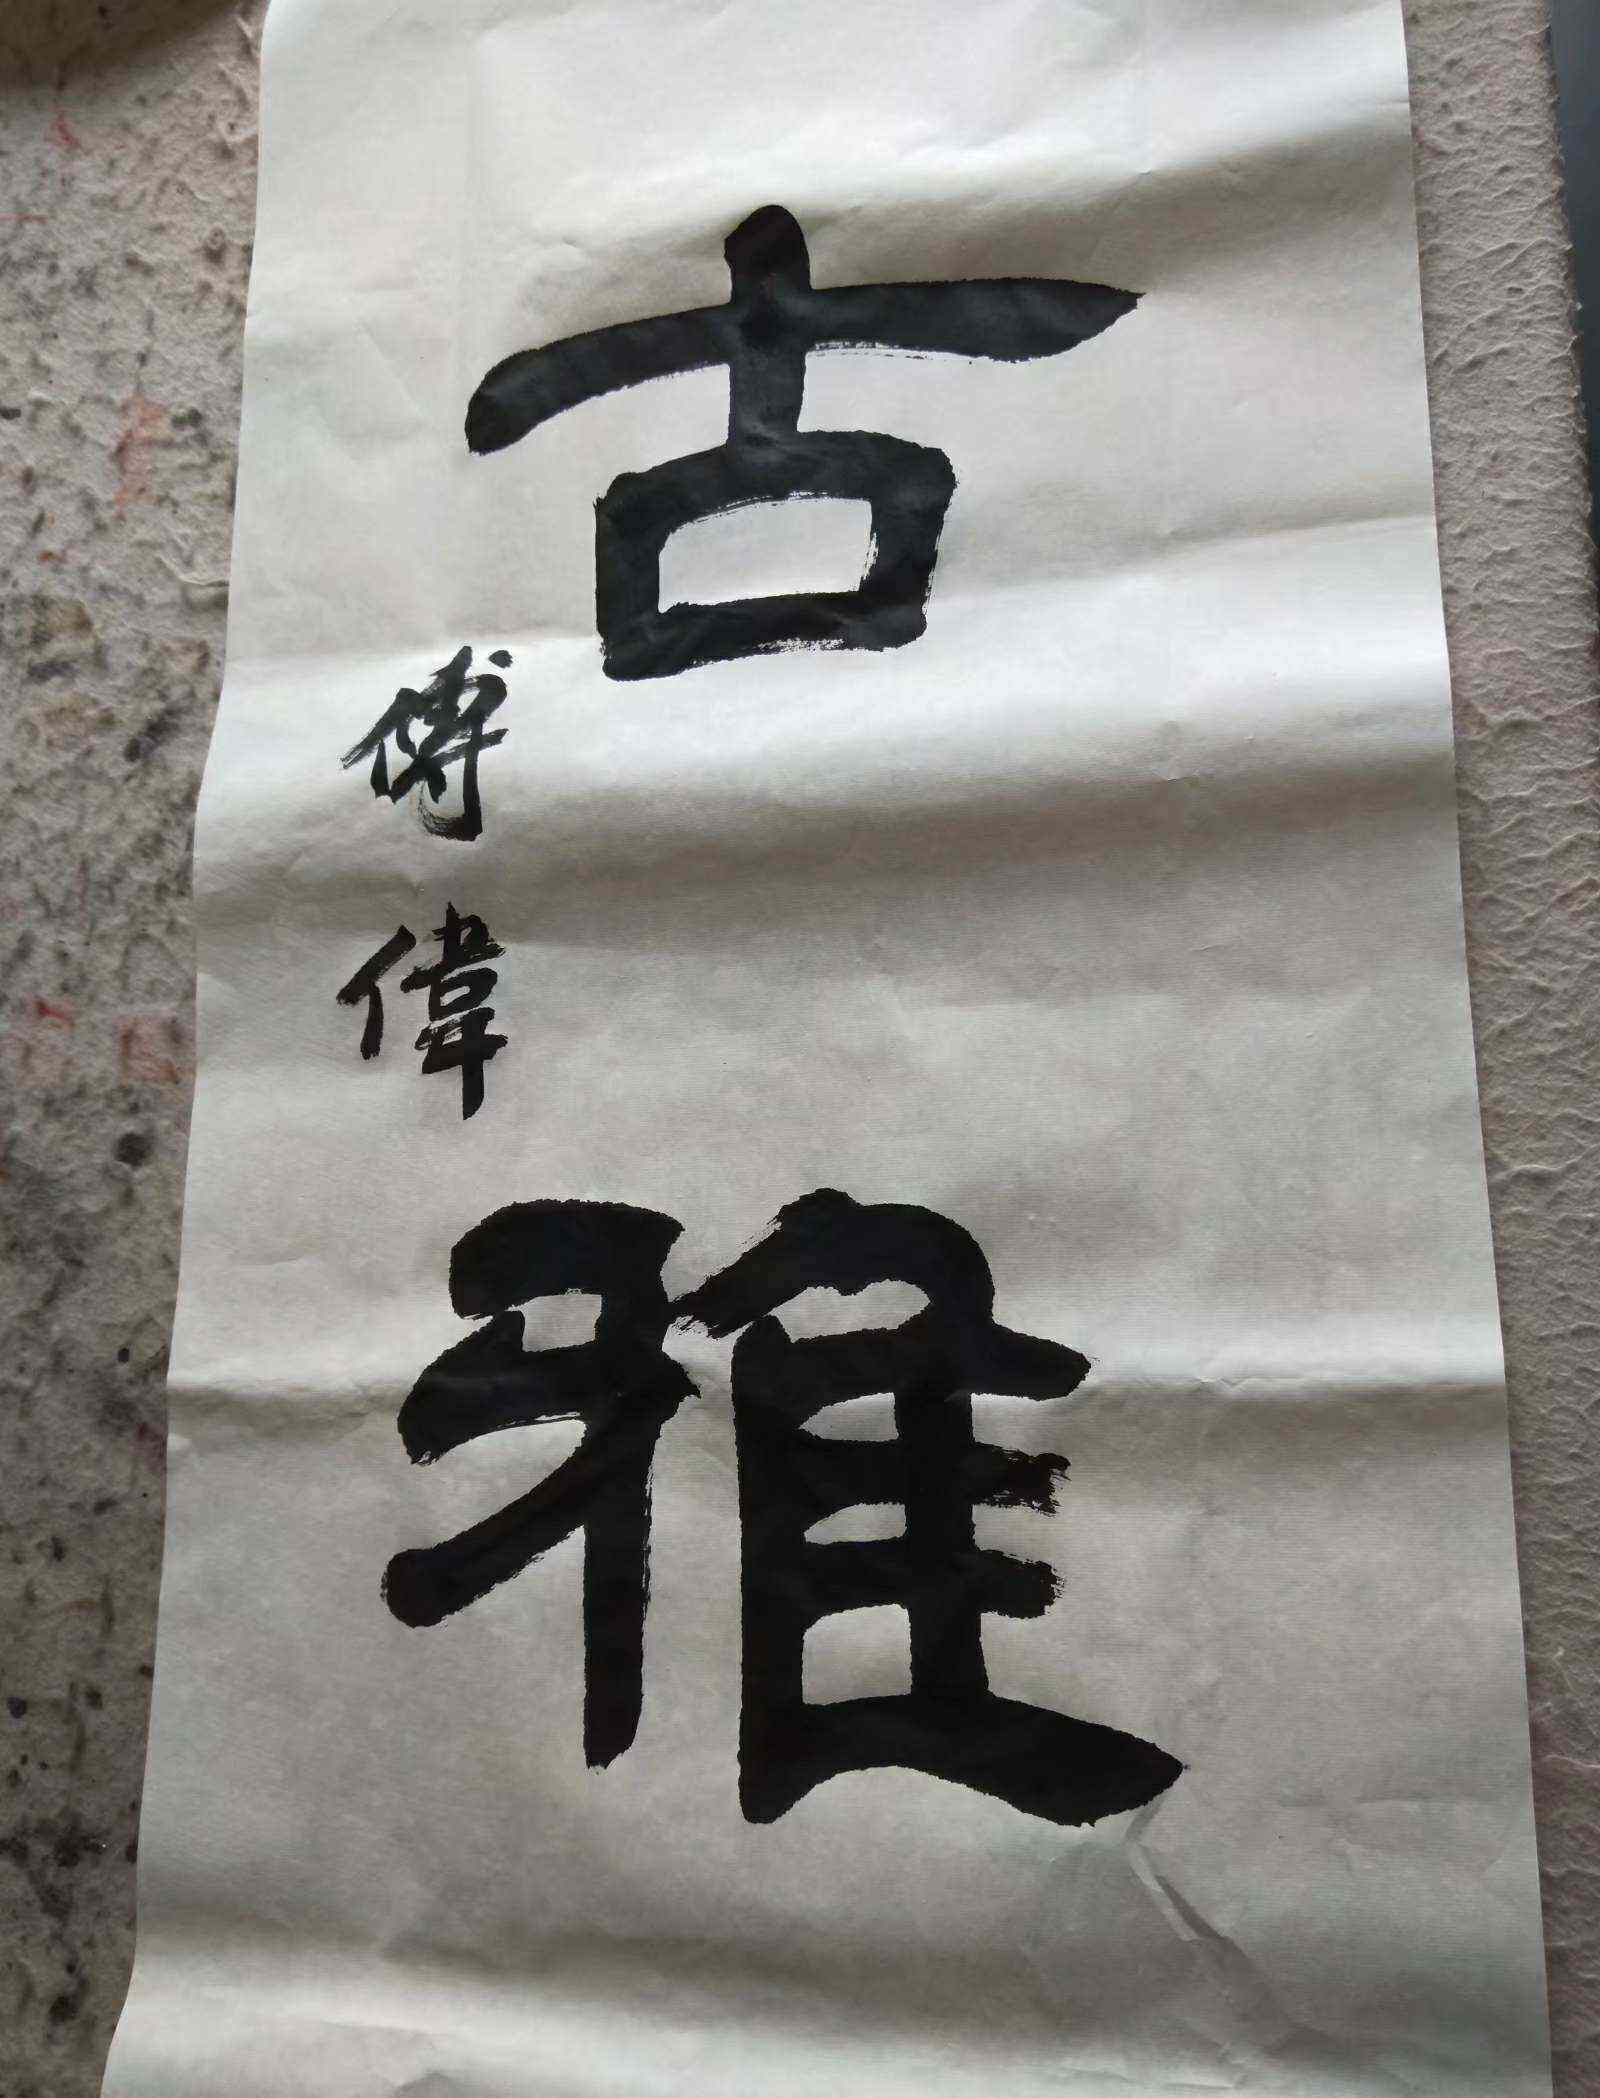 古雅
傅偉